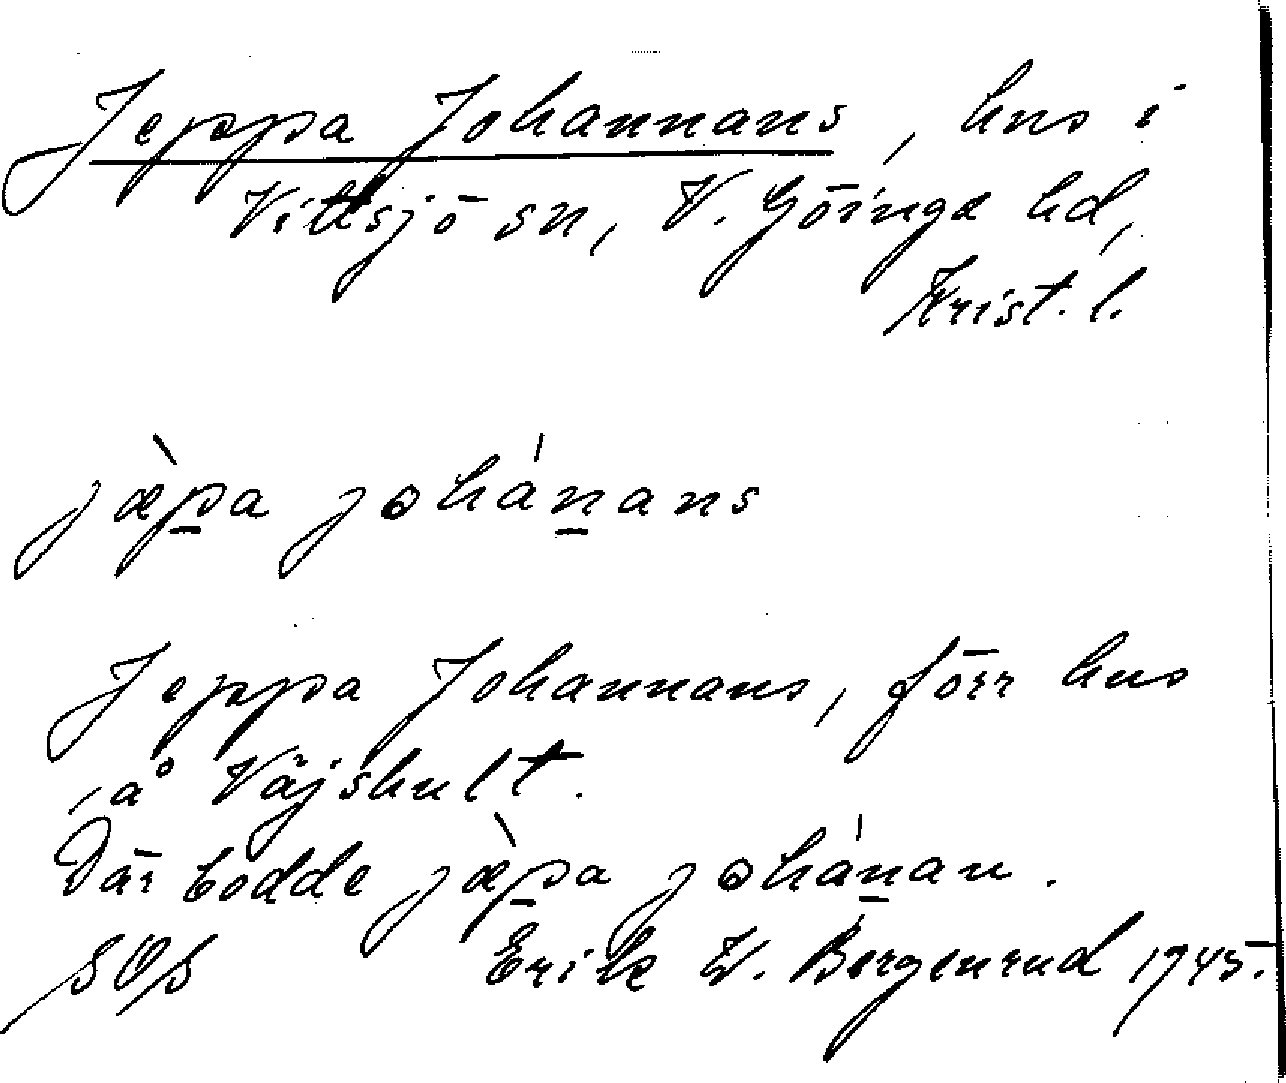 Jeppa Johannans, hus i
Vittsjö sn, V. Göinge hd,
Krist. l.
jæ̀p̲a johán̲ans
Jeppa Johannans, förr hus
å Väjshult.
Där bodde jæ̀p̲a johán̲an.
SOS Erik W. Bergenrud 1945.